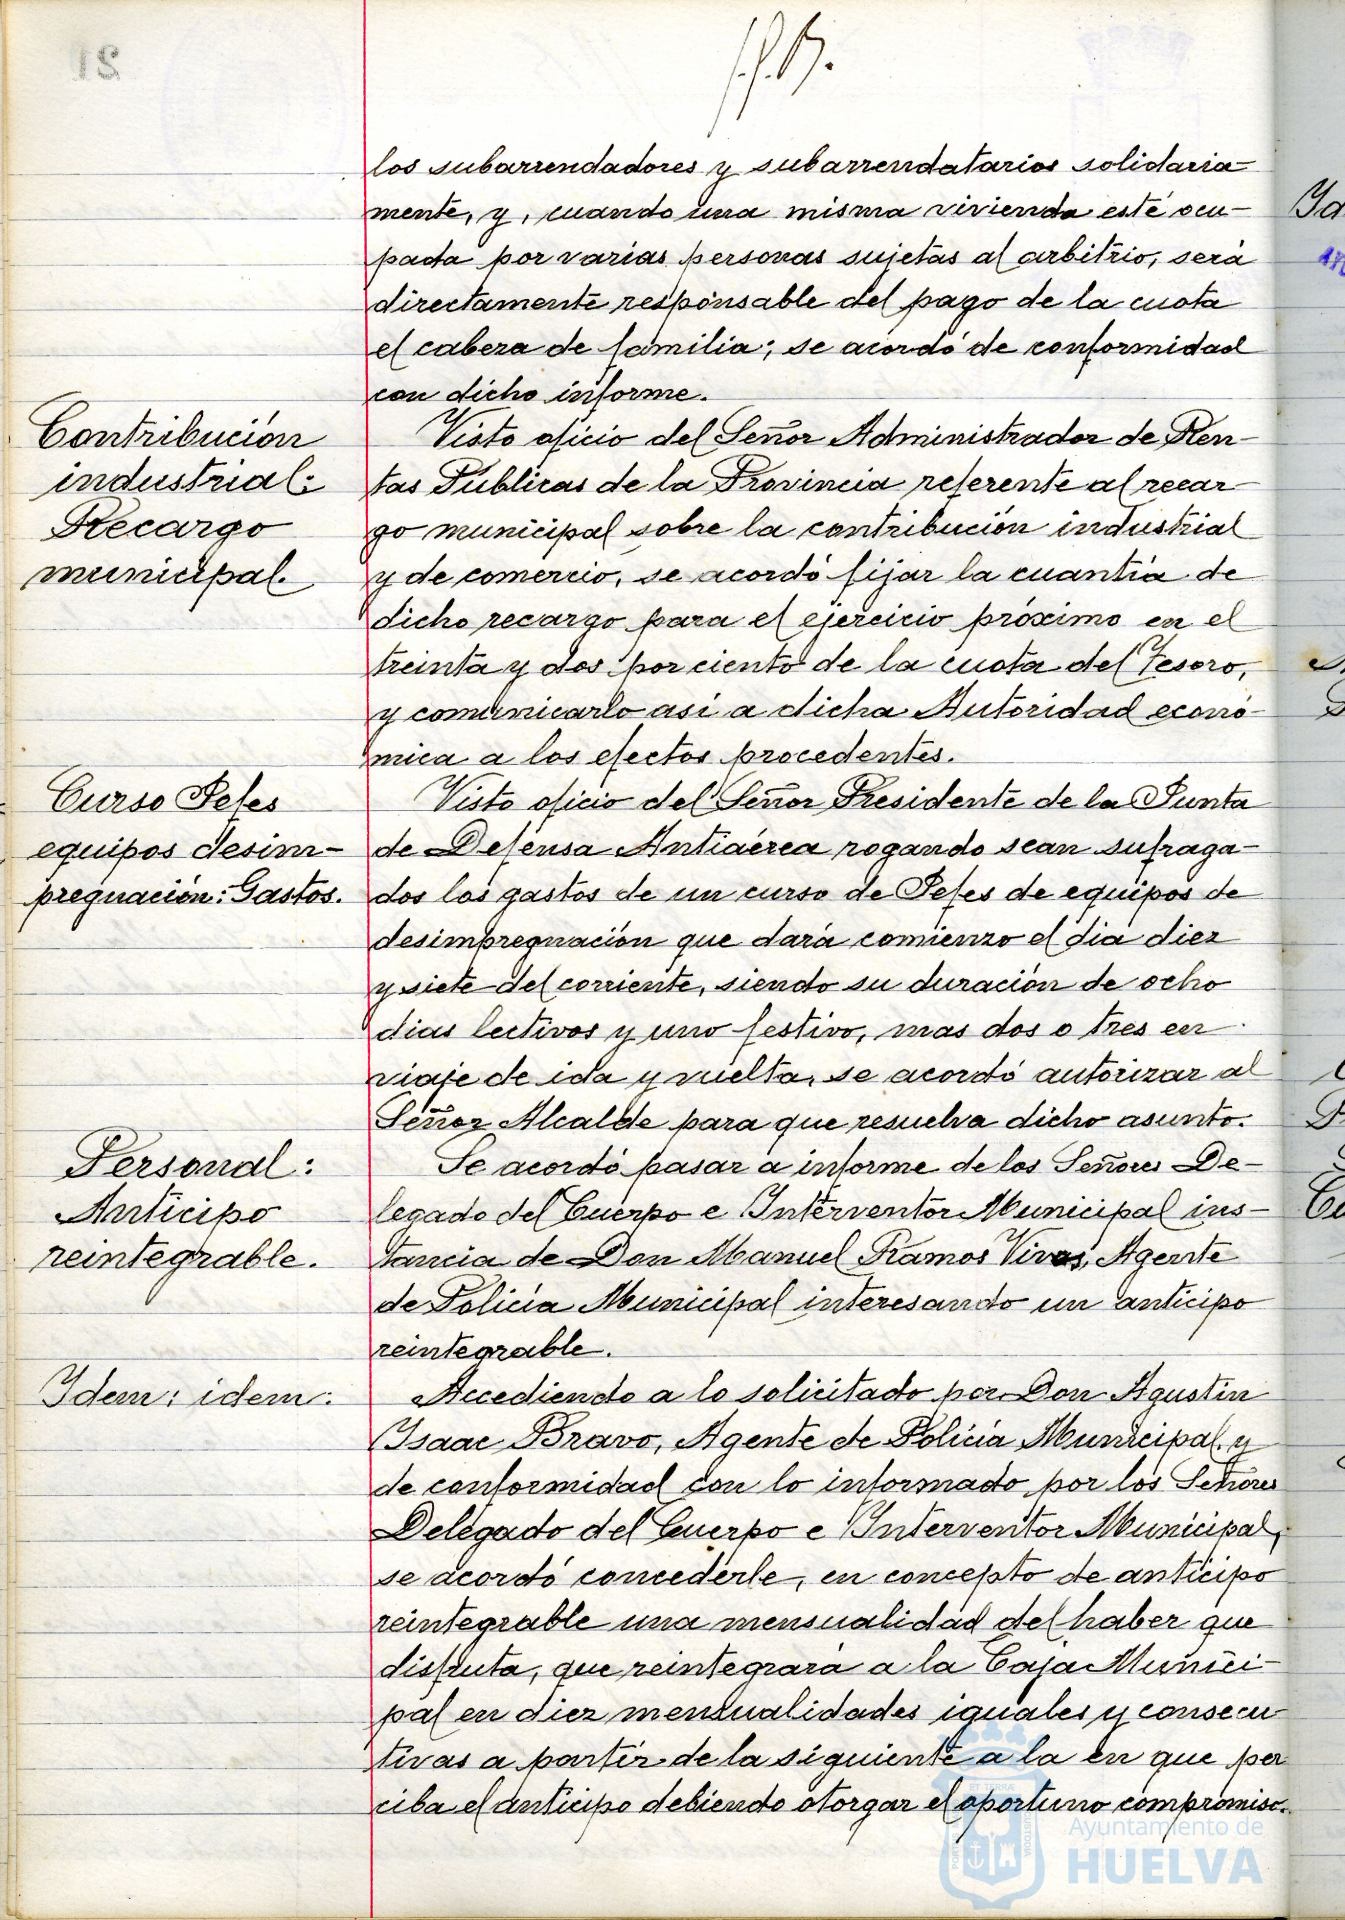 los subarrendadores y subarrendatarios solidaria-
mente, y, cuando una misma vivienda esté ocu-
pada por varias personas sujetas al arbitrio, será
directamente responsable del pago de la cuota
el cabeza de familia; se acordó de conformidad
con dicho informe.
Contribución
industrial:
Recargo
municipal.
Visto oficio del Señor Administrador de Ren-
tas Públicas de la Provincia referente al recar-
go municipal sobre la contribución industrial
y de comercio, se acordó fijar la cuantía de
dicho recargo para el ejercicio próximo en el
treinta y dos por ciento de la cuota del Tesoro,
y comunicarlo así a dicha Autoridad econó-
mica a los efectos procedentes.
Curso Jefes
equipos desim-
pregnación: Gastos.
Visto oficio del Señor Presidente de la Junta
de Defensa Antiaérea rogando sean sufraga-
dos los gastos de un curso de Jefes de equipos de
desimpregnación que dará comienzo el día diez
y siete del corriente, siendo su duración de ocho
días lectivos y uno festivo, mas dos o tres en
viaje de ida y vuelta, se acordó autorizar al
Señor Alcalde para que resuelva dicho asunto.
Personal:
Anticipo
reintegrable.
Se acordó pasar a informe de los Señores De-
legado del Cuerpo e Interventor Municipal ins-
tancia de Don Manuel Ramos Vivas, Agente
de Policía Municipal interesando un anticipo
reintegrable.
Idem: idem:
Accediendo a lo solicitado por Don Agustín
Isaac Bravo, Agente de Policía Municipal y
de conformidad con lo informado por los Señores
Delegado del Cuerpo e Interventor Municipal,
se acordó concederle, en concepto de anticipo
reintegrable una mensualidad del haber que
disfruta, que reintegrará a la Caja Munici-
pal en diez mensualidades iguales y consecu
tivas a partir de la siguiente a la en que per
ciba el anticipo debiendo otorgar el oportuno compromiso.
Ayuntamiento de
HUELVA